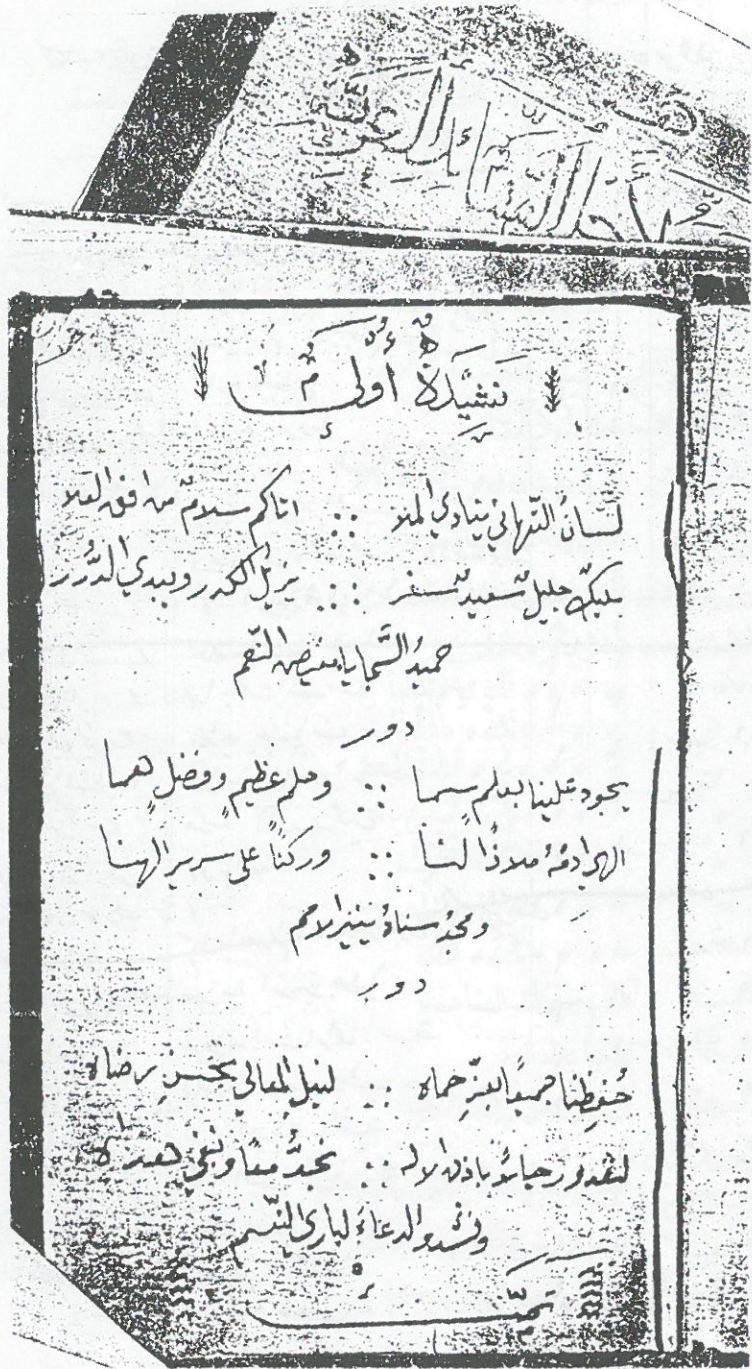 الأناشيد العربية
نشيدة أولى
لسان التهاني ينادي الملا :: اتاكم سلام من افق العلا
مليك جليل سعيد سفر :: يزيل الكدر ويبدي الدرر
حميد السجايا مفيض النعم
دور
يجود علينا بعلم سما :: وحلم عظيم وفضل هما
الهي ادمه ملاذا لنا :: وركنا على سرير الهنا
ومجد سناه ينير الامم
دور
حُفِظنا جميعا بعزّ حماه :: لنيل المعالي بحسن رضاه
لنغدو حياة باذن الاله :: نجدّ معا ونبغي هداه
ونشدو الدعاء لباري النسم
تمت